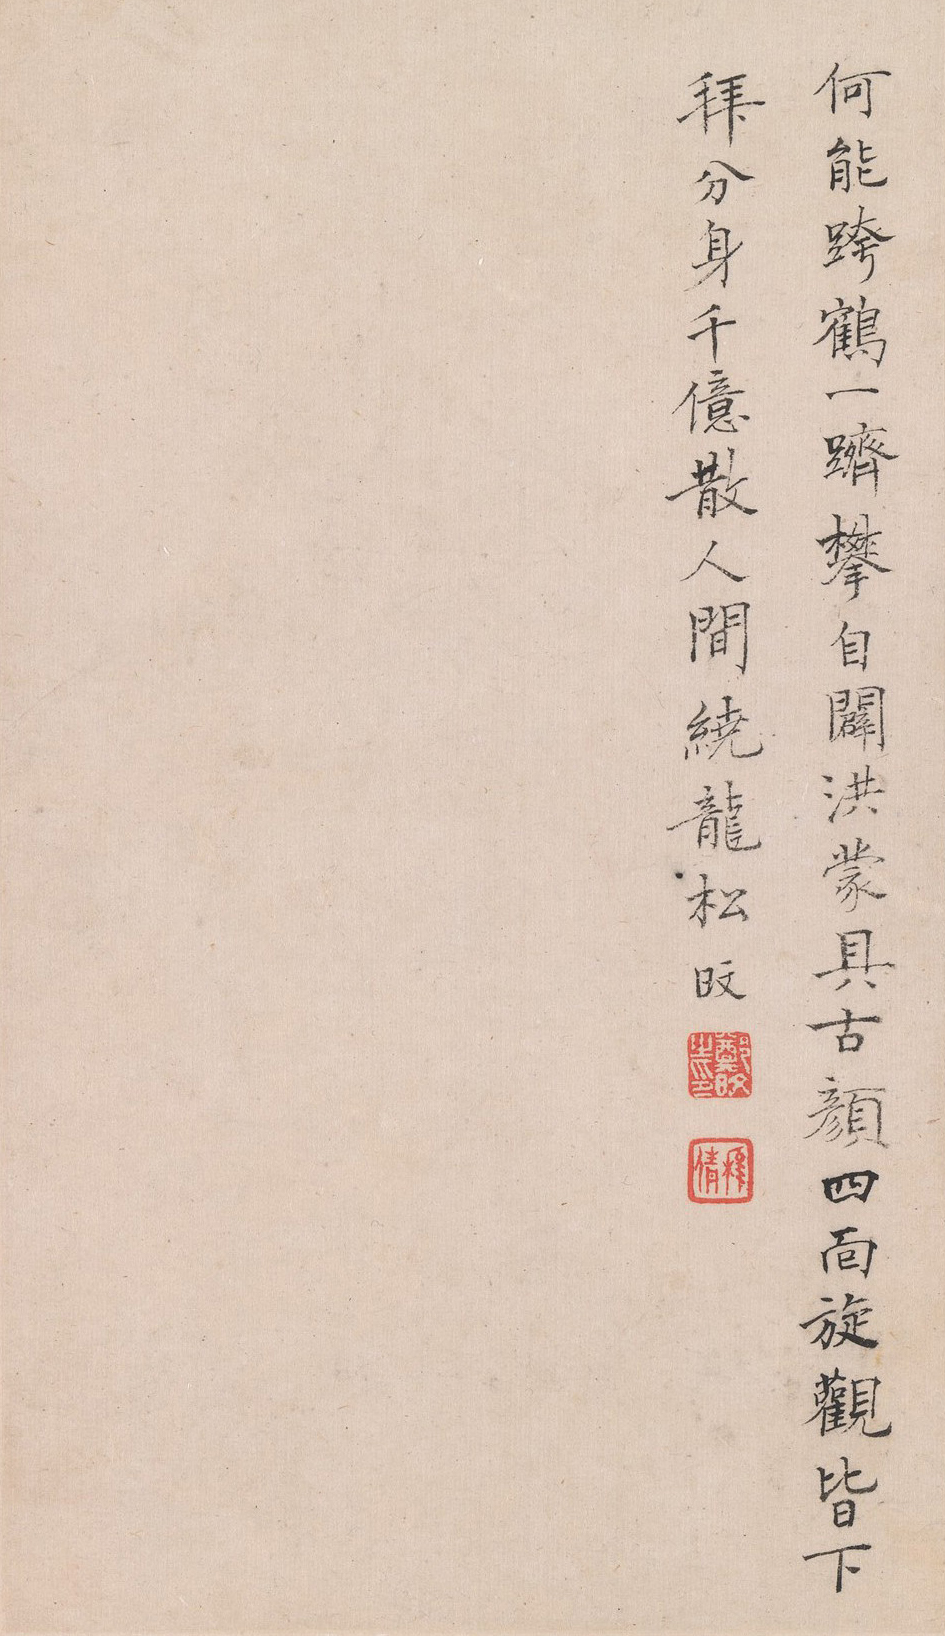 何能跨鶴一躋攀自闢洪蒙具古顏四面旋觀皆下
拜分身千億散人間繞龍松旼
鄭旼之印
倩